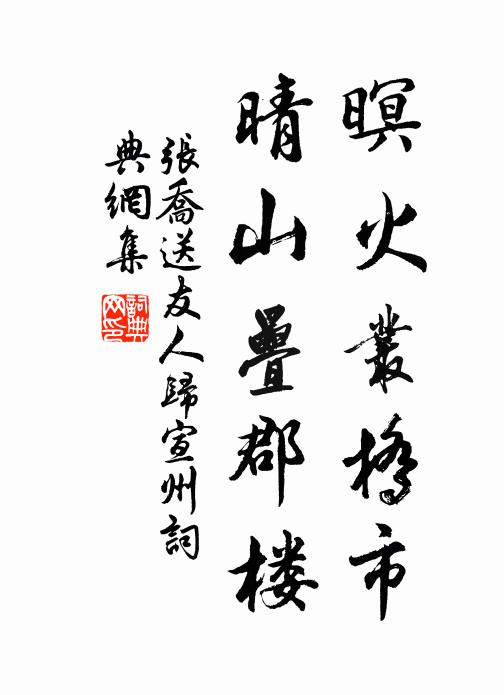 暝火叢橋市
晴山疊郡楼
張喬送友人歸宣州詞
典網集
詞典
网印